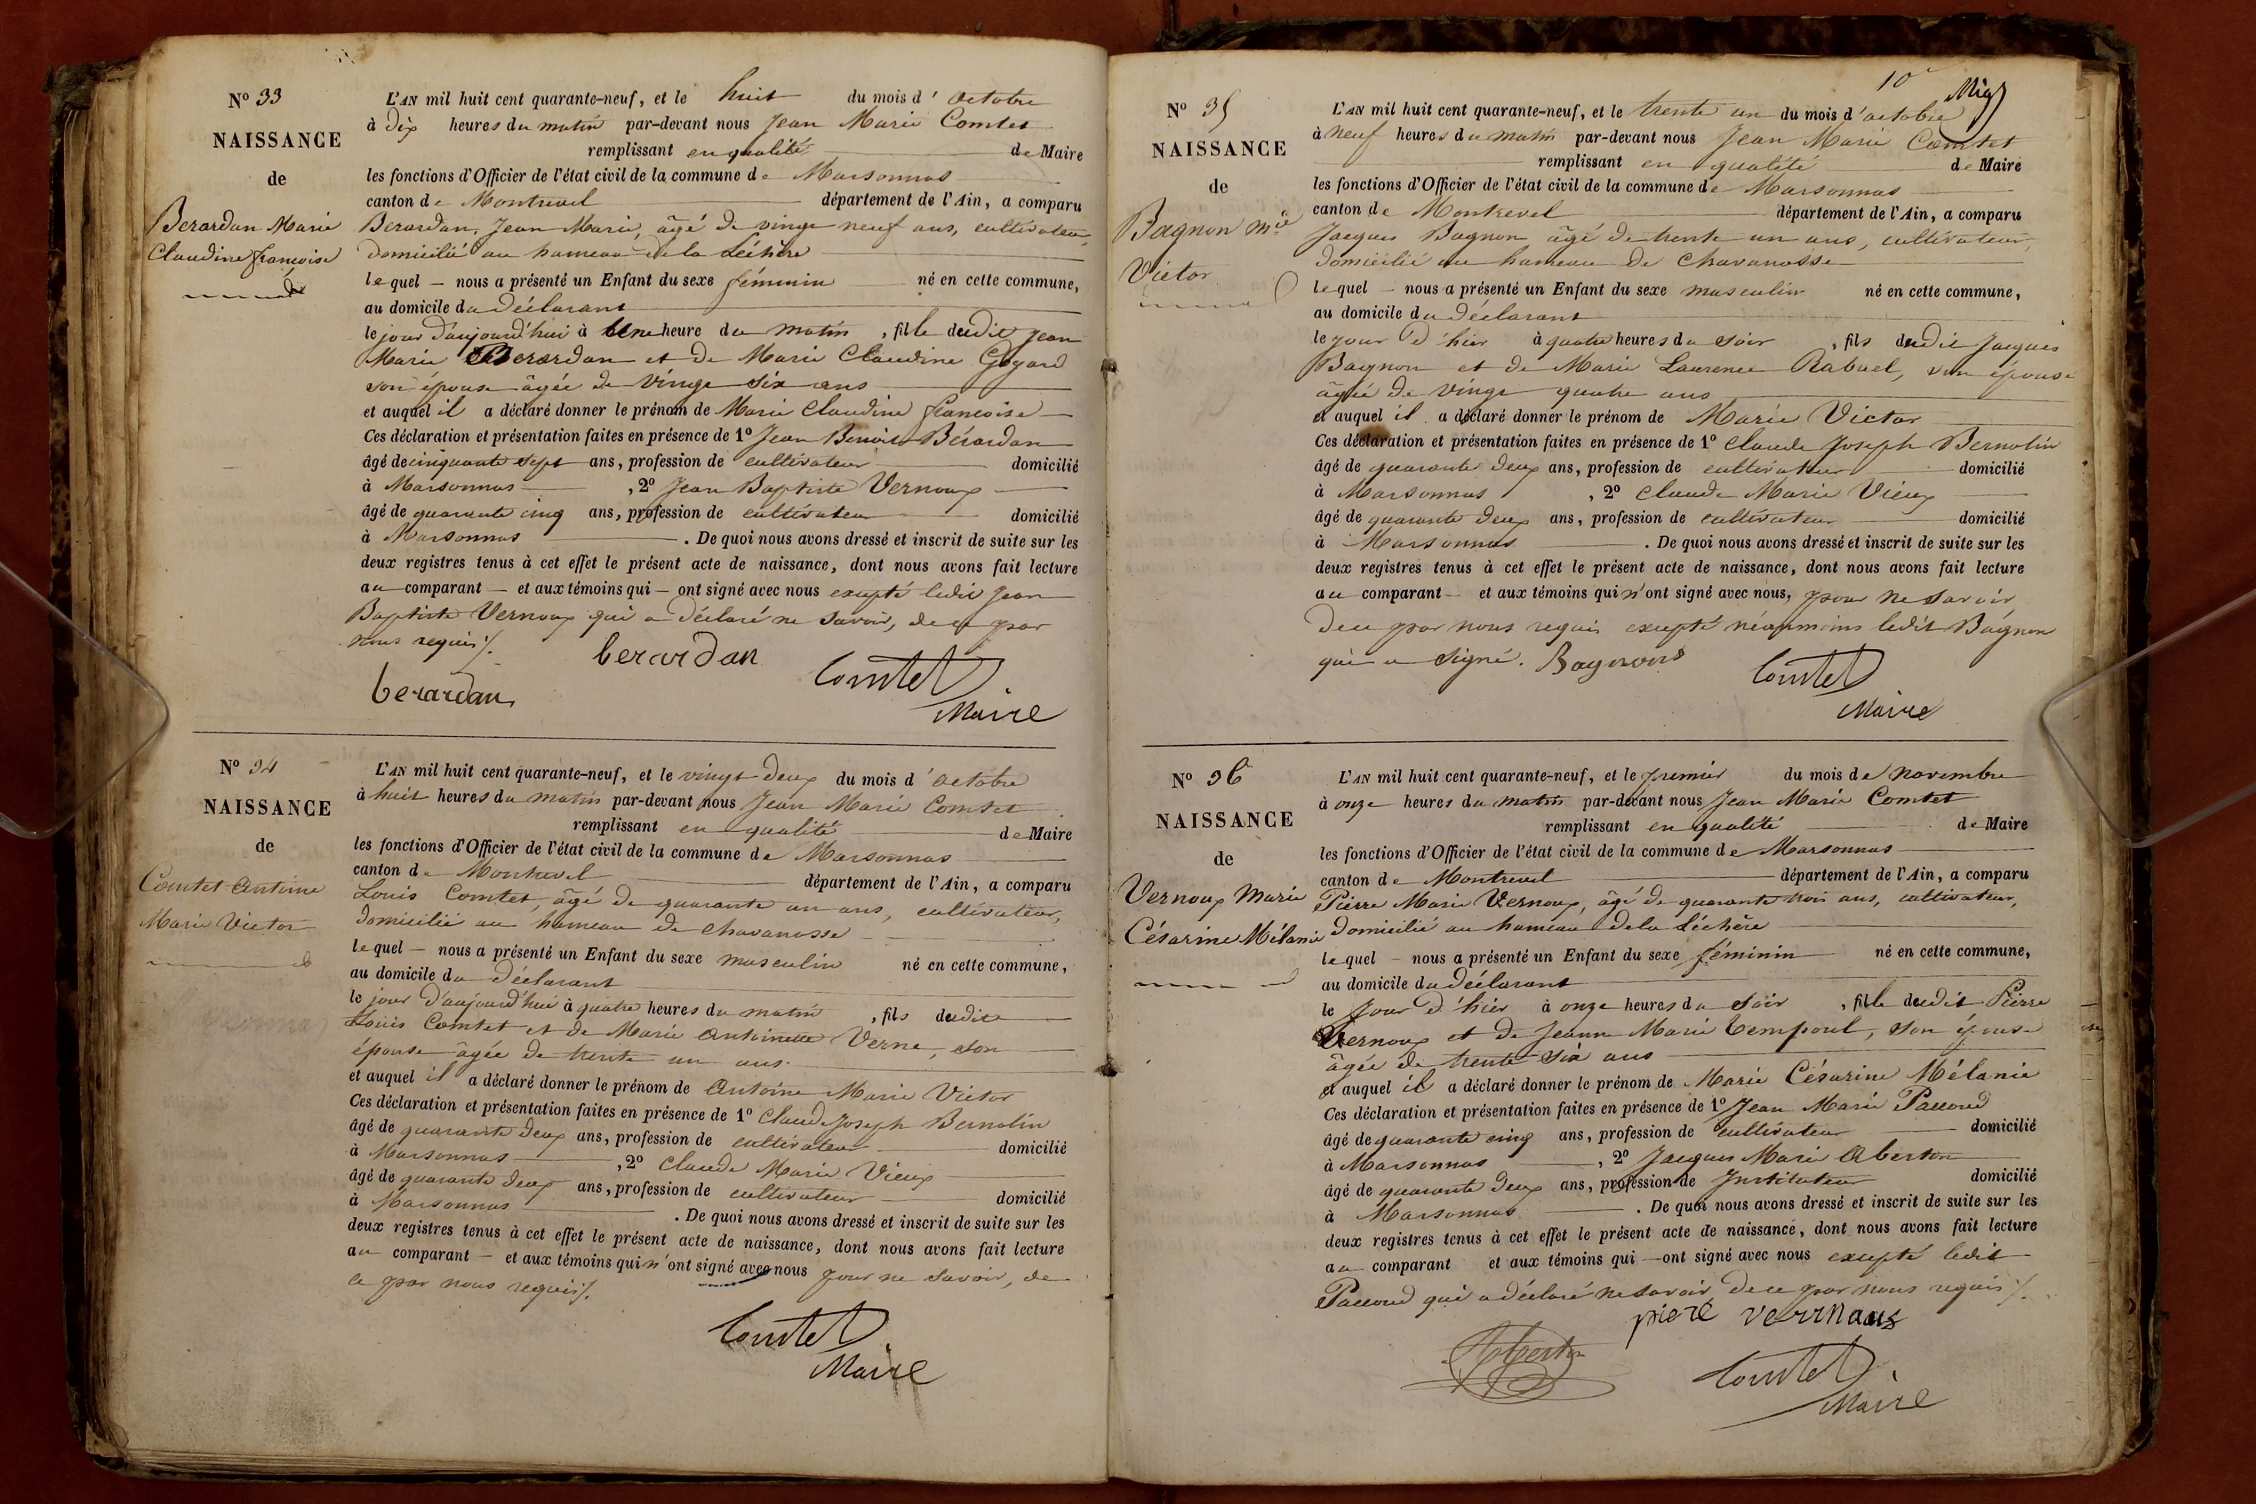 Nº 33
NAISSANCE
de
Berardan Marie
Claudine françoise
L'AN mil huit cent quarante-neuf, et le huit du mois d' octobre
à Dix heures du matin par-devant nous Jean Marie Comtet
remplissant en qualité de Maire
les fonctions d'Officier de l'état civil de la commune de Marsonnas
canton de Montrevel département de l'Ain, a comparu
Berardan, Jean Marie, âgé de vingt neuf ans, cultivateur,
domicilié au hameau de la Léchère
lequel — nous a présenté un Enfant du sexe féminin né en cette commune,
au domicile du Déclarant
le jour d'aujourd'hui à Une heure du matin, fille dudit Jean
Marie Berardan et de Marie Claudine Goyard
son épouse âgée de vingt six ans
et auquel il a déclaré donner le prénom de Marie Claudine françoise
Ces déclaration et présentation faites en présence de 1º Jean Benoit Bérardan
âgé de cinquante sept ans, profession de cultivateur domicilié
à Marsonnas, 2º Jean Baptiste Vernoux
âgé de quarante cinq ans, profession de cultivateur domicilié
à Marsonnas. De quoi nous avons dressé et inscrit de suite sur les
deux registres tenus à cet effet le présent acte de naissance, dont nous avons fait lecture
au comparant — et aux témoins qui — ont signé avec nous excepté ledit Jean
Baptiste Vernoux qui a déclaré ne savoir, de ce par
nous requis /.
berardan
Comtet
berardan
Maire
Nº 34
NAISSANCE
de
Comtet Antoine
Marie Victor
L'AN mil huit cent quarante-neuf, et le vingt deux du mois d' octobre
à huit heures du matin par-devant nous Jean Marie Comtet
remplissant en qualité de Maire
les fonctions d'Officier de l'état civil de la commune de Marsonnas
canton de Montrevel département de l'Ain, a comparu
Louis Comtet, âgé de quarante un ans, cultivateur,
domicilié au hameau de Chavanosse
lequel — nous a présenté un Enfant du sexe masculin né en cette commune,
au domicile du Déclarant
le jour d'aujourd'hui à quatre heures du matin, fils dudit
Louis Comtet et de Marie Antoinette Verne, son
épouse âgée de trente un ans
et auquel il a déclaré donner le prénom de Antoine Marie Victor
Ces déclaration et présentation faites en présence de 1º Claude Joseph Bernolin
âgé de quarante deux ans, profession de cultivateur domicilié
à Marsonnas, 2º Claude Marie Vieux
âgé de quarante deux ans, profession de cultivateur domicilié
à Marsonnas. De quoi nous avons dressé et inscrit de suite sur les
deux registres tenus à cet effet le présent acte de naissance, dont nous avons fait lecture
au comparant — et aux témoins qui n'ont signé avec nous pour ne savoir, de
ce par nous requis /.
Comtet
Maire
10
Nº 35
NAISSANCE
de
Bagnon Mie
Victor
L'AN mil huit cent quarante-neuf, et le trente un du mois d'octobre
à neuf heures du matin par-devant nous Jean Marie Comtet
remplissant en qualité de Maire
les fonctions d'Officier de l'état civil de la commune de Marsonnas
canton de Montrevel département de l'Ain, a comparu
Jacques Bagnon âgé de trente un ans, cultivateur,
domicilié au hameau de Chavanosse
lequel — nous a présenté un Enfant du sexe masculin né en cette commune,
au domicile du Déclarant
le jour d'hier à quatre heures du soir, fils dudit Jacques
Bagnon et de Marie Laurence Rabuel, son épouse
âgée de vingt quatre ans
et auquel il a déclaré donner le prénom de Marie Victor
Ces déclaration et présentation faites en présence de 1º Claude Joseph Bernolin
âgé de quarante deux ans, profession de cultivateur domicilié
à Marsonnas, 2º Claude Marie Vieux
âgé de quarante deux ans, profession de cultivateur domicilié
à Marsonnas. De quoi nous avons dressé et inscrit de suite sur les
deux registres tenus à cet effet le présent acte de naissance, dont nous avons fait lecture
au comparant — et aux témoins qui n'ont signé avec nous, pour ne savoir
De ce par nous requis excepté néanmoins ledit Bagnon
qui a signé.
Comtet
Maire
Nº 36
NAISSANCE
de
Vernoux Marie
Césarine Mélanie
L'AN mil huit cent quarante-neuf, et le premier du mois de novembre
à onze heures du matin par-devant nous Jean Marie Comtet
remplissant en qualité de Maire
les fonctions d'Officier de l'état civil de la commune de Marsonnas
canton de Montrevel département de l'Ain, a comparu
Pierre Marie Vernoux, âgé de quarante trois ans, cultivateur,
domicilié au hameau de la Léchère
lequel — nous a présenté un Enfant du sexe féminin né en cette commune,
au domicile du Déclarant
le Jour d'hier à onze heures du soir, fille dudit Pierre
Vernoux et de Jeanne Marie Temporal, son épouse
âgée de trente six ans
et auquel il a déclaré donner le prénom de Marie Césarine Mélanie
Ces déclaration et présentation faites en présence de 1º Jean Marie Paccoud
âgé de quarante cinq ans, profession de cultivateur domicilié
à Marsonnas, 2º Jacques Marie Oberton
âgé de quarante deux ans, profession de Instituteur domicilié
à Marsonnas. De quoi nous avons dressé et inscrit de suite sur les
deux registres tenus à cet effet le présent acte de naissance, dont nous avons fait lecture
au comparant et aux témoins qui — ont signé avec nous excepté ledit
Paccoud qui a déclaré ne savoir De ce par nous requis /.
Comtet
Maire